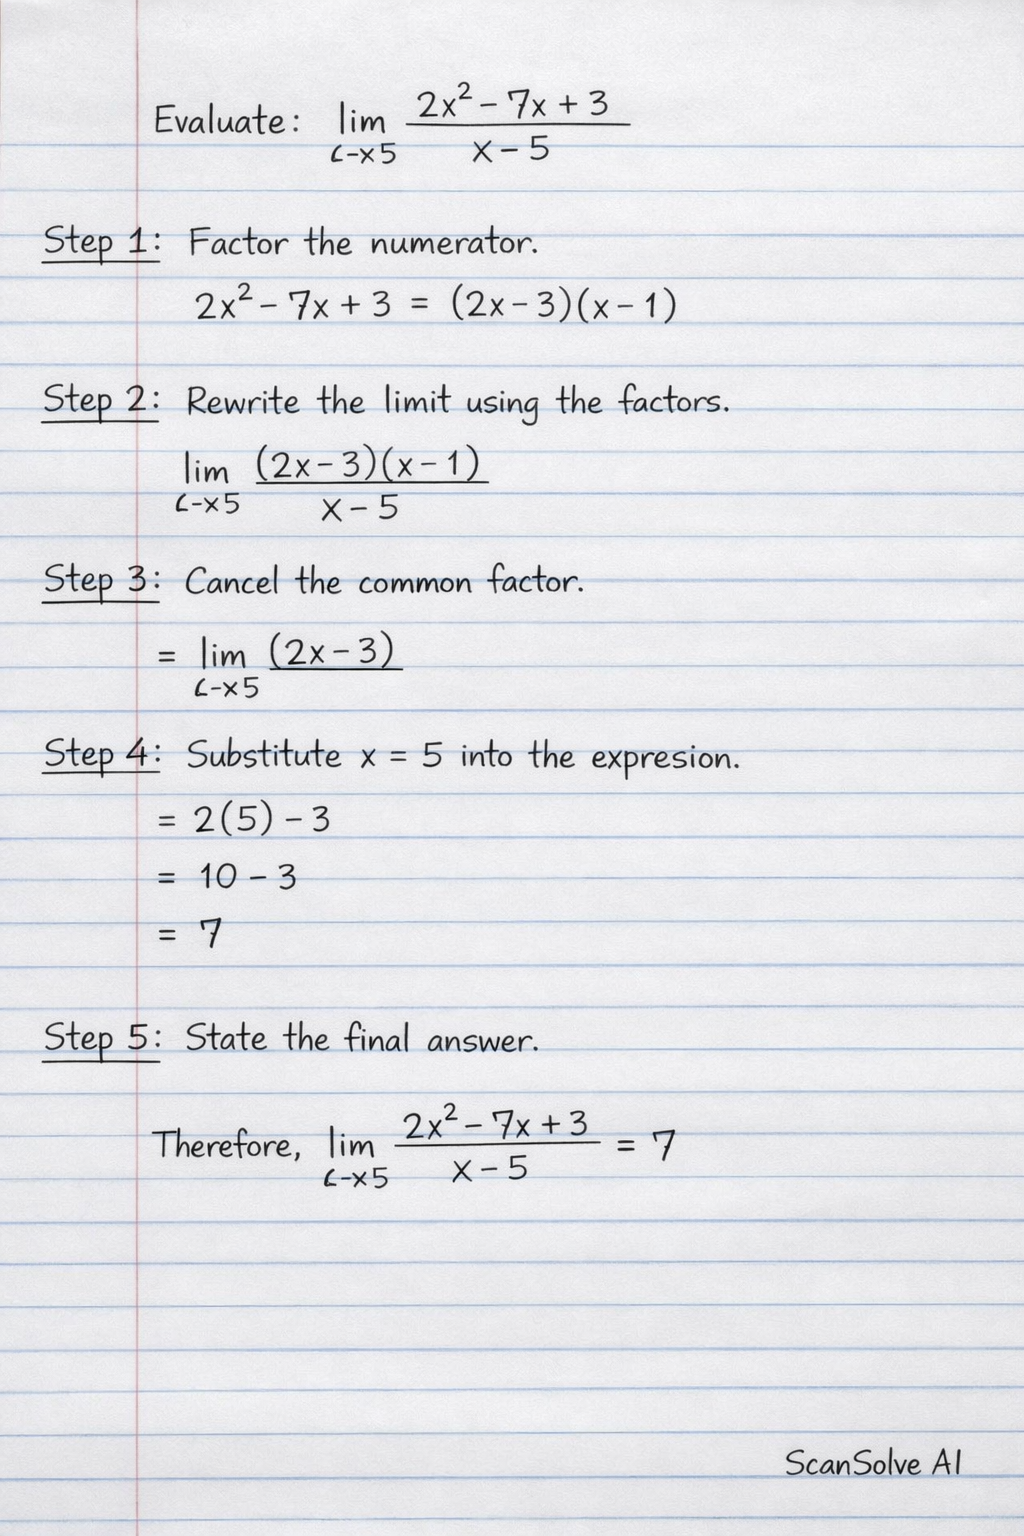 Evaluate: lim 2x² – 7x + 3
c-x5 x – 5
Step 1: Factor the numerator.
2x² – 7x + 3 = (2x – 3)(x – 1)
Step 2: Rewrite the limit using the factors.
lim (2x – 3)(x – 1)
c-x5 x – 5
Step 3: Cancel the common factor.
= lim (2x – 3)
c-x5
Step 4: Substitute x = 5 into the expresion.
= 2(5) – 3
= 10 – 3
= 7
Step 5: State the final answer.
Therefore, lim 2x² – 7x + 3 = 7
c-x5 x – 5
ScanSolve AI